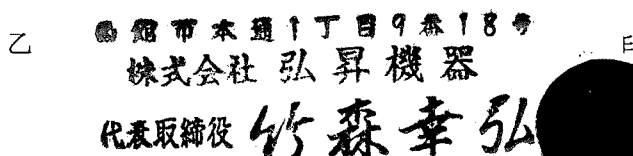 乙
函館市本通1丁目9番18号
株式会社 弘昇機器
代表取締役 竹森幸弘